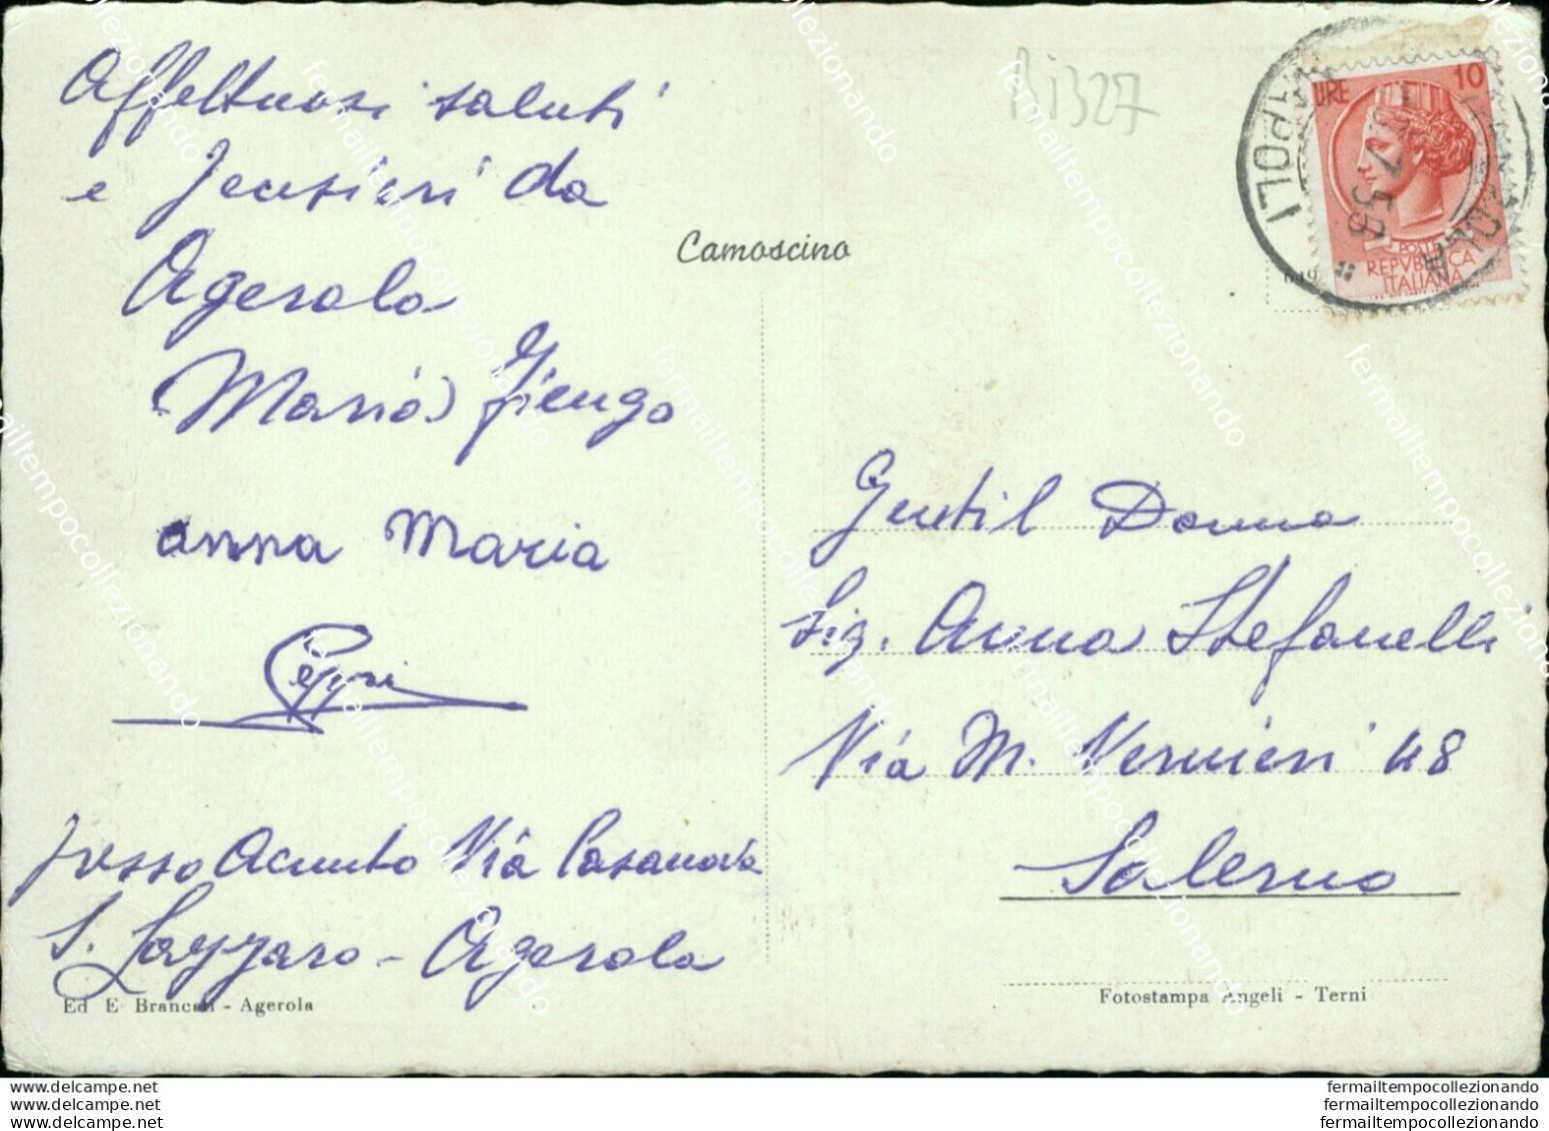 Affettuosi saluti
e pensieri da
Agerola
Maria
Anna Maria
Peppi
presso Acunto Via Casanova
S. Lazzaro - Agerola
Ed E Brancati - Agerola
Camoscino
Bi327
LIRE 10
POSTE
REPVBBLICA
ITALIANA
7 58
Gentil Donna
Sig. Anna Stefanelli
Via M. Vernieri 48
Salerno
Fotostampa Angeli - Terni
www.delcampe.net
www.delcampe.net
www.delcampe.net
fermailtempocollezionando
fermailtempocollezionando
fermailtempocollezionando